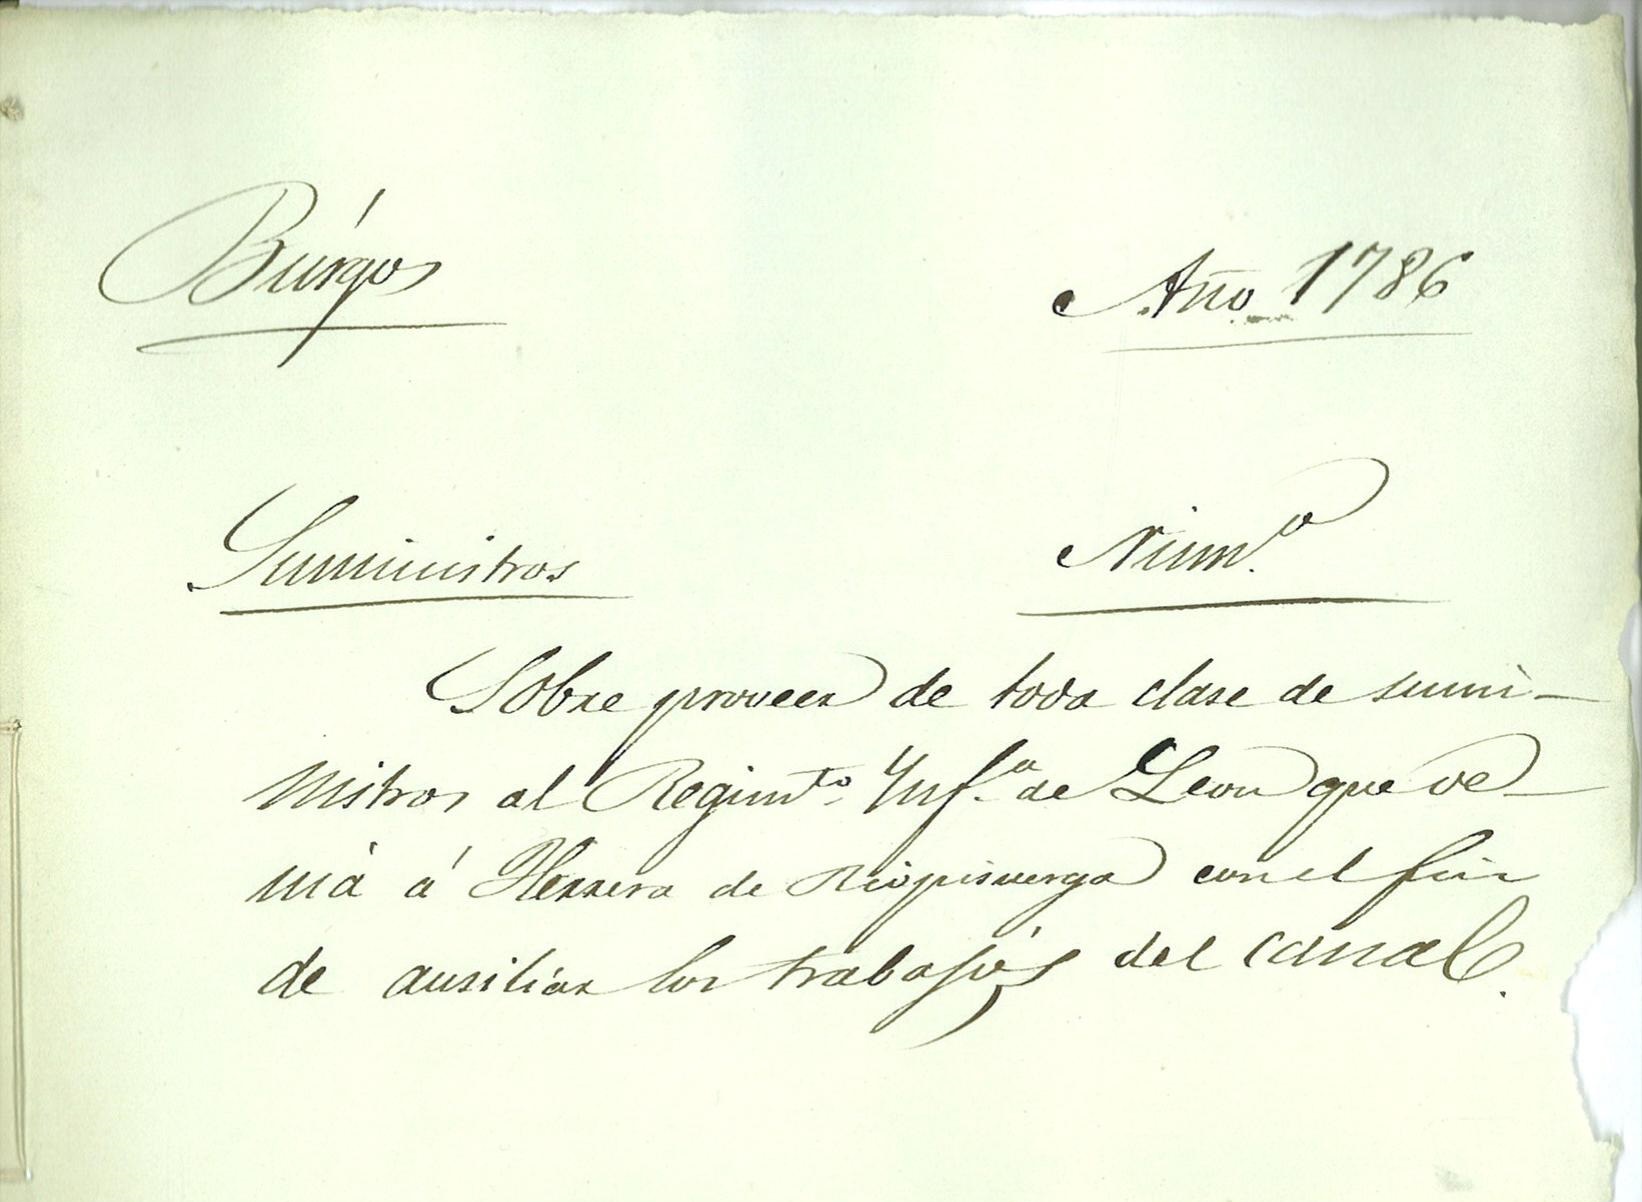 Búrgos
Año 1786
Suministros
Núm.º
Sobre proveer de toda clase de sumi-
nistros al Regimto. Ynf.ª de Leon que ve-
nia á Herrera de Riopisuerga con el fin
de ausiliar los trabajos del canal.